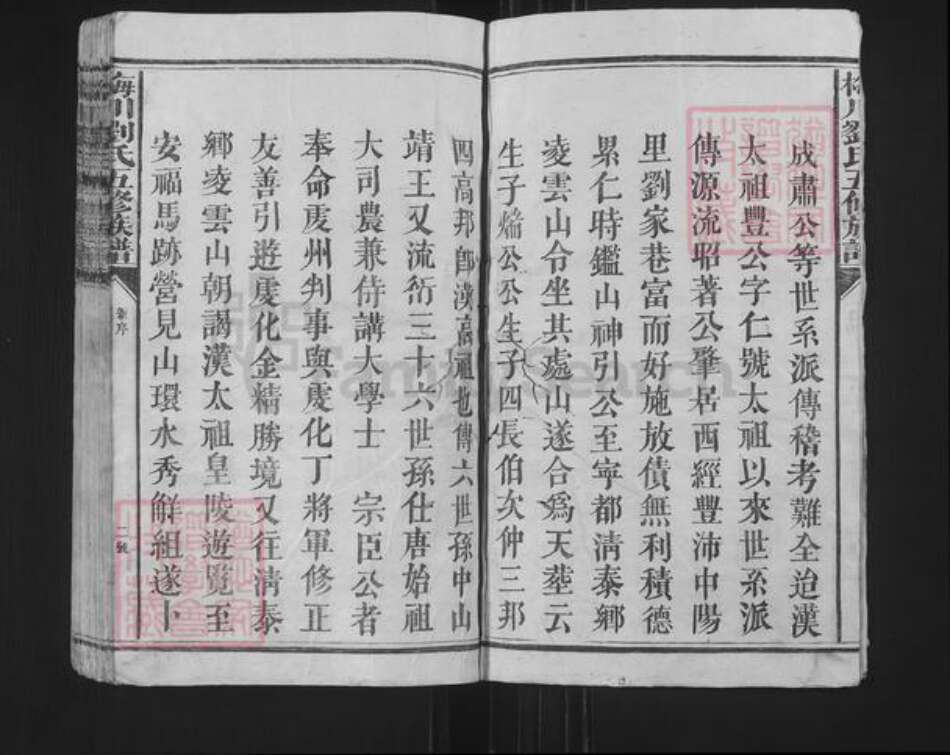 梅川劉氏五修族譜
成肅公等世系派傳稽考難全迨漢
太祖豐公字仁號太祖以來世系派
傳源流昭著公肇居西經豐沛中陽
里劉家巷富而好施放債無利積德
累仁時鑑山神引公至寧都清泰鄉
凌雲山令坐其處山遂合爲天塟云
生子煓公公生子四長伯次仲三邦
四高邦卽漢高祖也傳六世孫中山
靖王又流衍三十六世孫仕唐始祖
大司農兼侍講大學士 宗臣公者
奉命虔州判事與虔化丁將軍修正
友善引遊虔化金精勝境又往清泰
鄉凌雲山朝謁漢太祖皇陵遊覽至
安福馬跡營見山環水秀解組遂卜
梅川劉氏五修族譜
序
FamilySearch